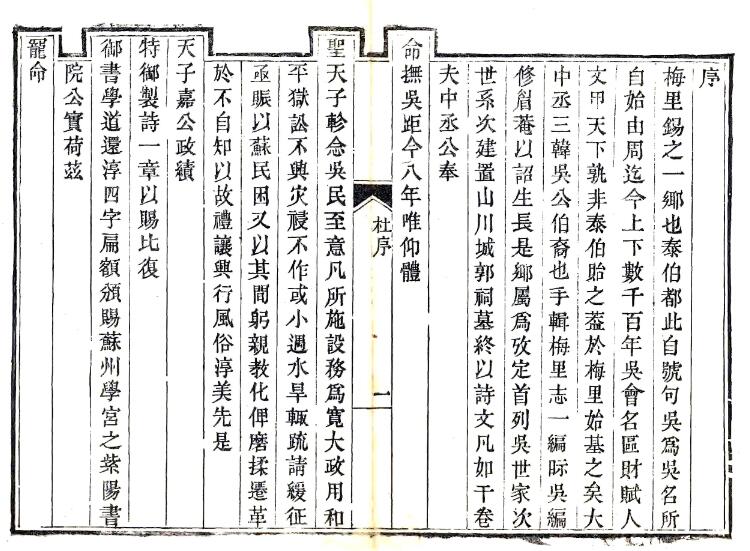 序
梅里錫之一鄉也泰伯都此自號句吳爲吳名所
自始由周迄今上下數千百年吳會名區財賦人
文甲天下孰非泰伯貽之葢於梅里始基之矣大
中丞三韓吳公伯裔也手輯梅里志一編眎吳編
修眉菴以詔生長是鄉屬爲攷定首列吳世家次
世系次建置山川城郭祠墓終以詩文凡如干卷
夫中丞公奉
命撫吳距今八年唯仰體
杜序
一
聖天子軫念吳民至意凡所施設務爲寬大政用和
平獄訟不興灾祲不作或小遇水旱輒疏請緩征
亟賑以蘇民困又以其間躬親教化俾磨揉遷革
於不自知以故禮讓興行風俗淳美先是
天子嘉公政績
特御製詩一章以賜比復
御書學道還淳四字扁額頒賜蘇州學宮之紫陽書
院公實荷茲
寵命